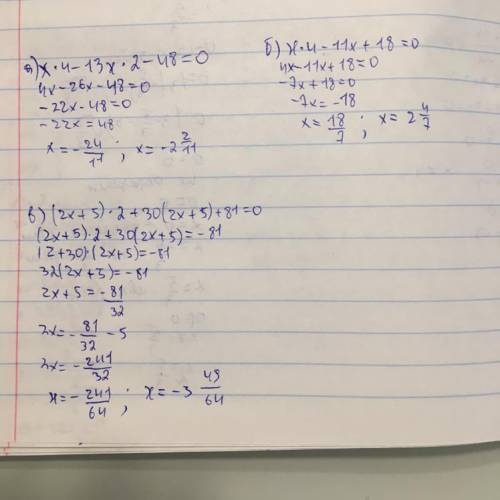 а) x·4-13x·2-48=0
4x-26x-48=0
-22x-48=0
-22x=48
x=-24/11; x=-2 2/11
б) x·4-11x+18=0
4x-11x+18=0
-7x+18=0
-7x=-18
x=18/7; x=2 4/7
в) (2x+5)·2+30(2x+5)+81=0
(2x+5)·2+30(2x+5)=-81
(2+30)·(2x+5)=-81
32(2x+5)=-81
2x+5=-81/32
2x=-81/32-5
2x=-241/32
x=-241/64; x=-3 49/64